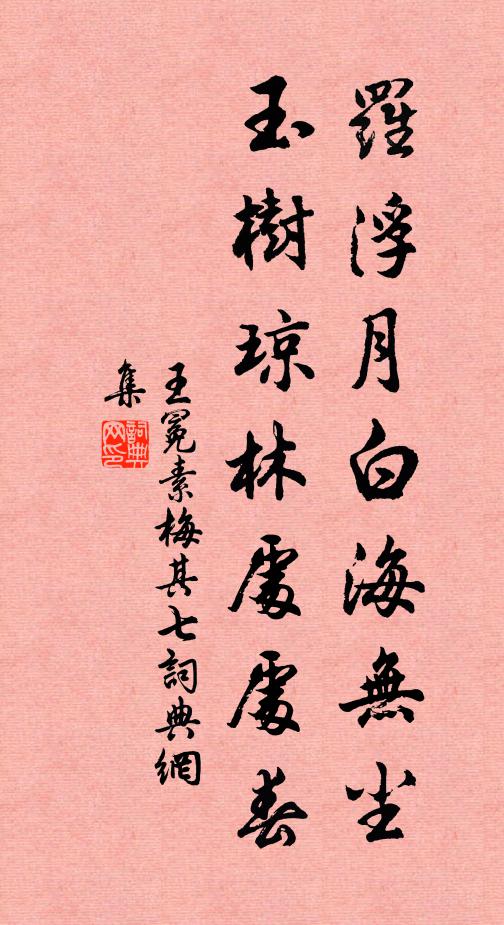 羅浮月白海無尘
玉樹琼林處處春
王冕素梅其七詞典網
集
詞典
网印